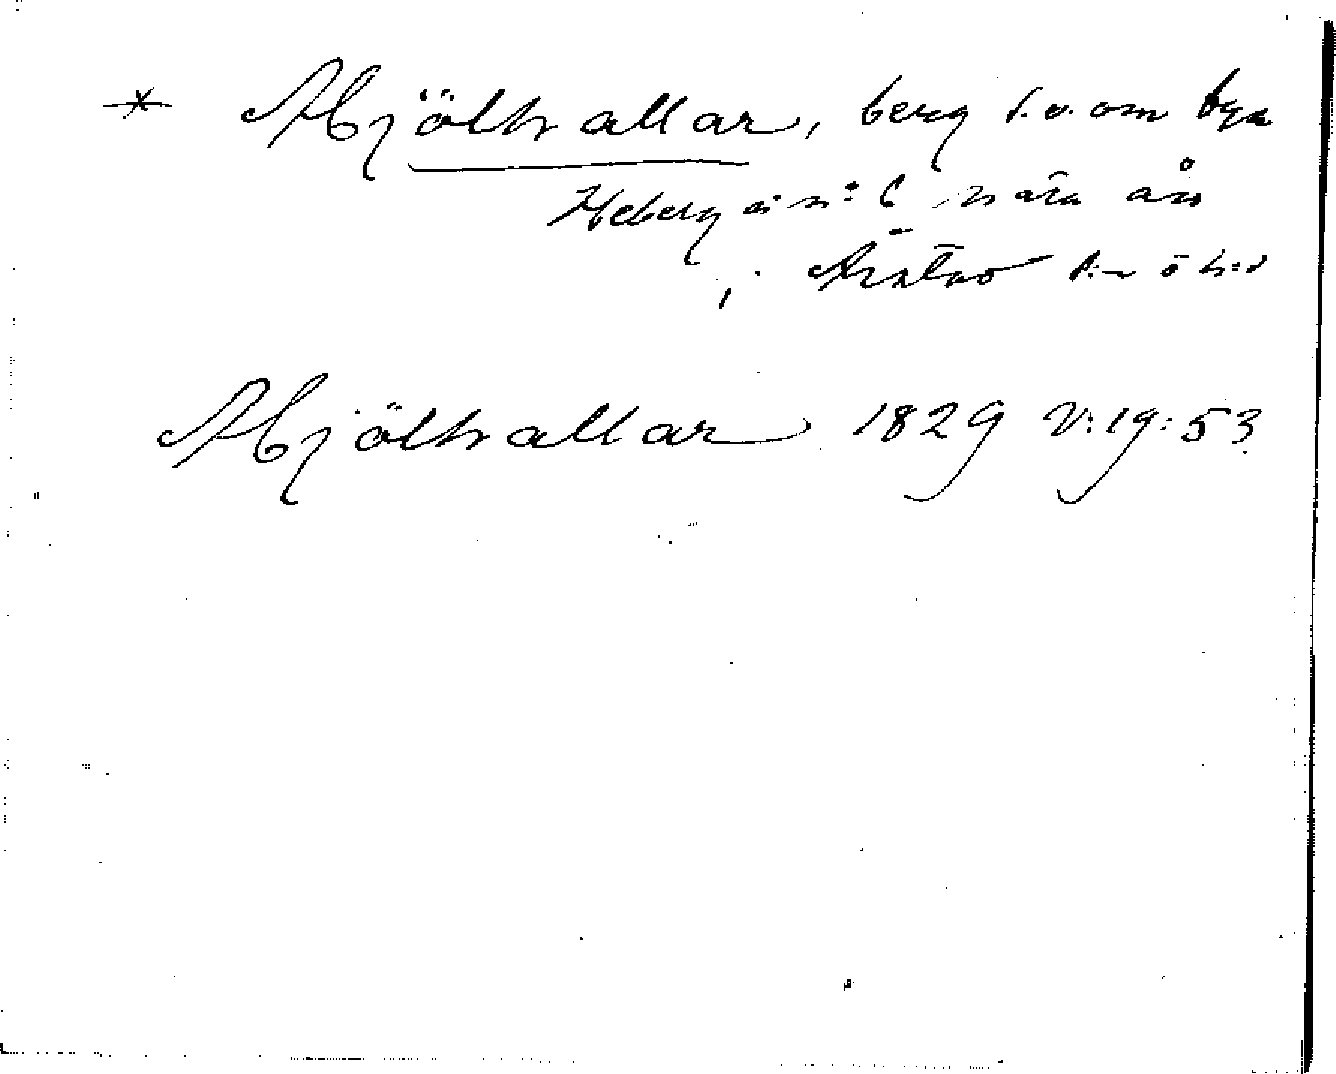 * Mjölhallar, berg s.v. om byn
Heberg å n:o 6 nära ån
i Årstad s:n o h:d
Mjölhallar 1829 V:19:53